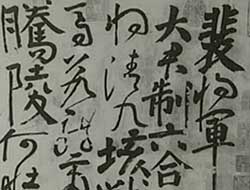 裴将軍
大君制六合
将清九垓
馬若龍虎
騰陵何壯